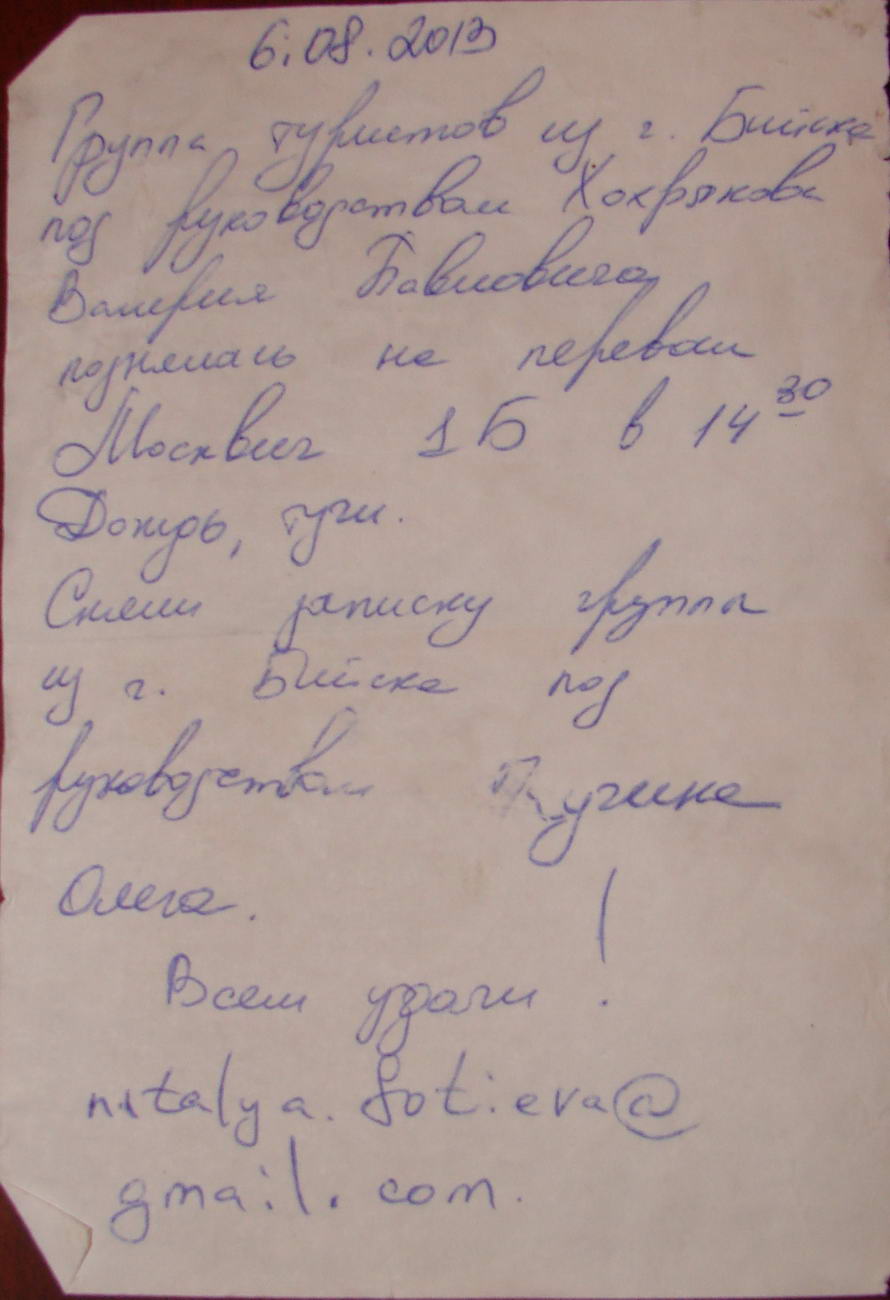 6.08.2013
Группа туристов из г. Бийска
под руководством Хохрякова
Валерия Павловича
поднялась на перевал
Москвич 1Б в 14 30
Дождь, тучи.
Сняли записку группы
из г. Бийска под
руководством
Олега.
Всем удачи!
natalya.fotieva@
gmail.com.